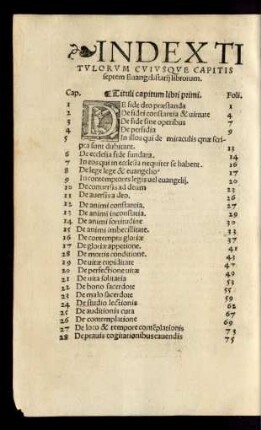 INDEX TI
TVLORVM CVIVSQVE CAPITIS
septem Euangelistarij librorum.
Cap. Tituli capitum libri primi. Foli.
1 DE fide deo præstanda 1
2 De fidei constantia & uirtute 4
3 De fide sine operibus 7
4 De perfidia 9
5 In illos qui de miraculis quæ scri-
pta sunt dubitant.
6 De ecclesia fide fundata. 14
7 In eos qui in ecclesia nequiter se habent. 16
8 De lege & euangelio
9 In contemptores legis uel euangelij.
10 De conuersis ad deum
11 De auersis a deo. 26
12 De animi constantia. 27
13 De animi inconstantia.
14 De animi fortitudine 30
15 De animi imbecillitate.
16 De contemptu gloriæ
17 De gloriæ appetitione.
18 De mortis conditione.
19 De uitæ cupiditate
20 De perfectione uitæ 50
21 De uita solitaria
22 De bono sacerdote 55
23 De malo sacerdote 59
24 De studio lectionis 62
25 De auditionis cura 67
26 De contemplatione 69
27 De loco & tempore contẽplationis 73
28 De prauis cogitationibus cauendis 75